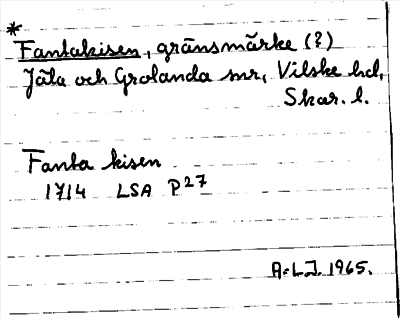 *
Fantakisen, gränsmärke (?)
Jäla och Grolanda snr, Vilske hd,
Skar. l.
Fanta kisen
1714 LSA P27
A-LJ. 1965.